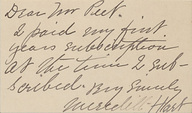 Dear Mr Peet.
I paid my first
years subscription
at the time I sub-
scribed. Very Sincerely
Meredith Hart